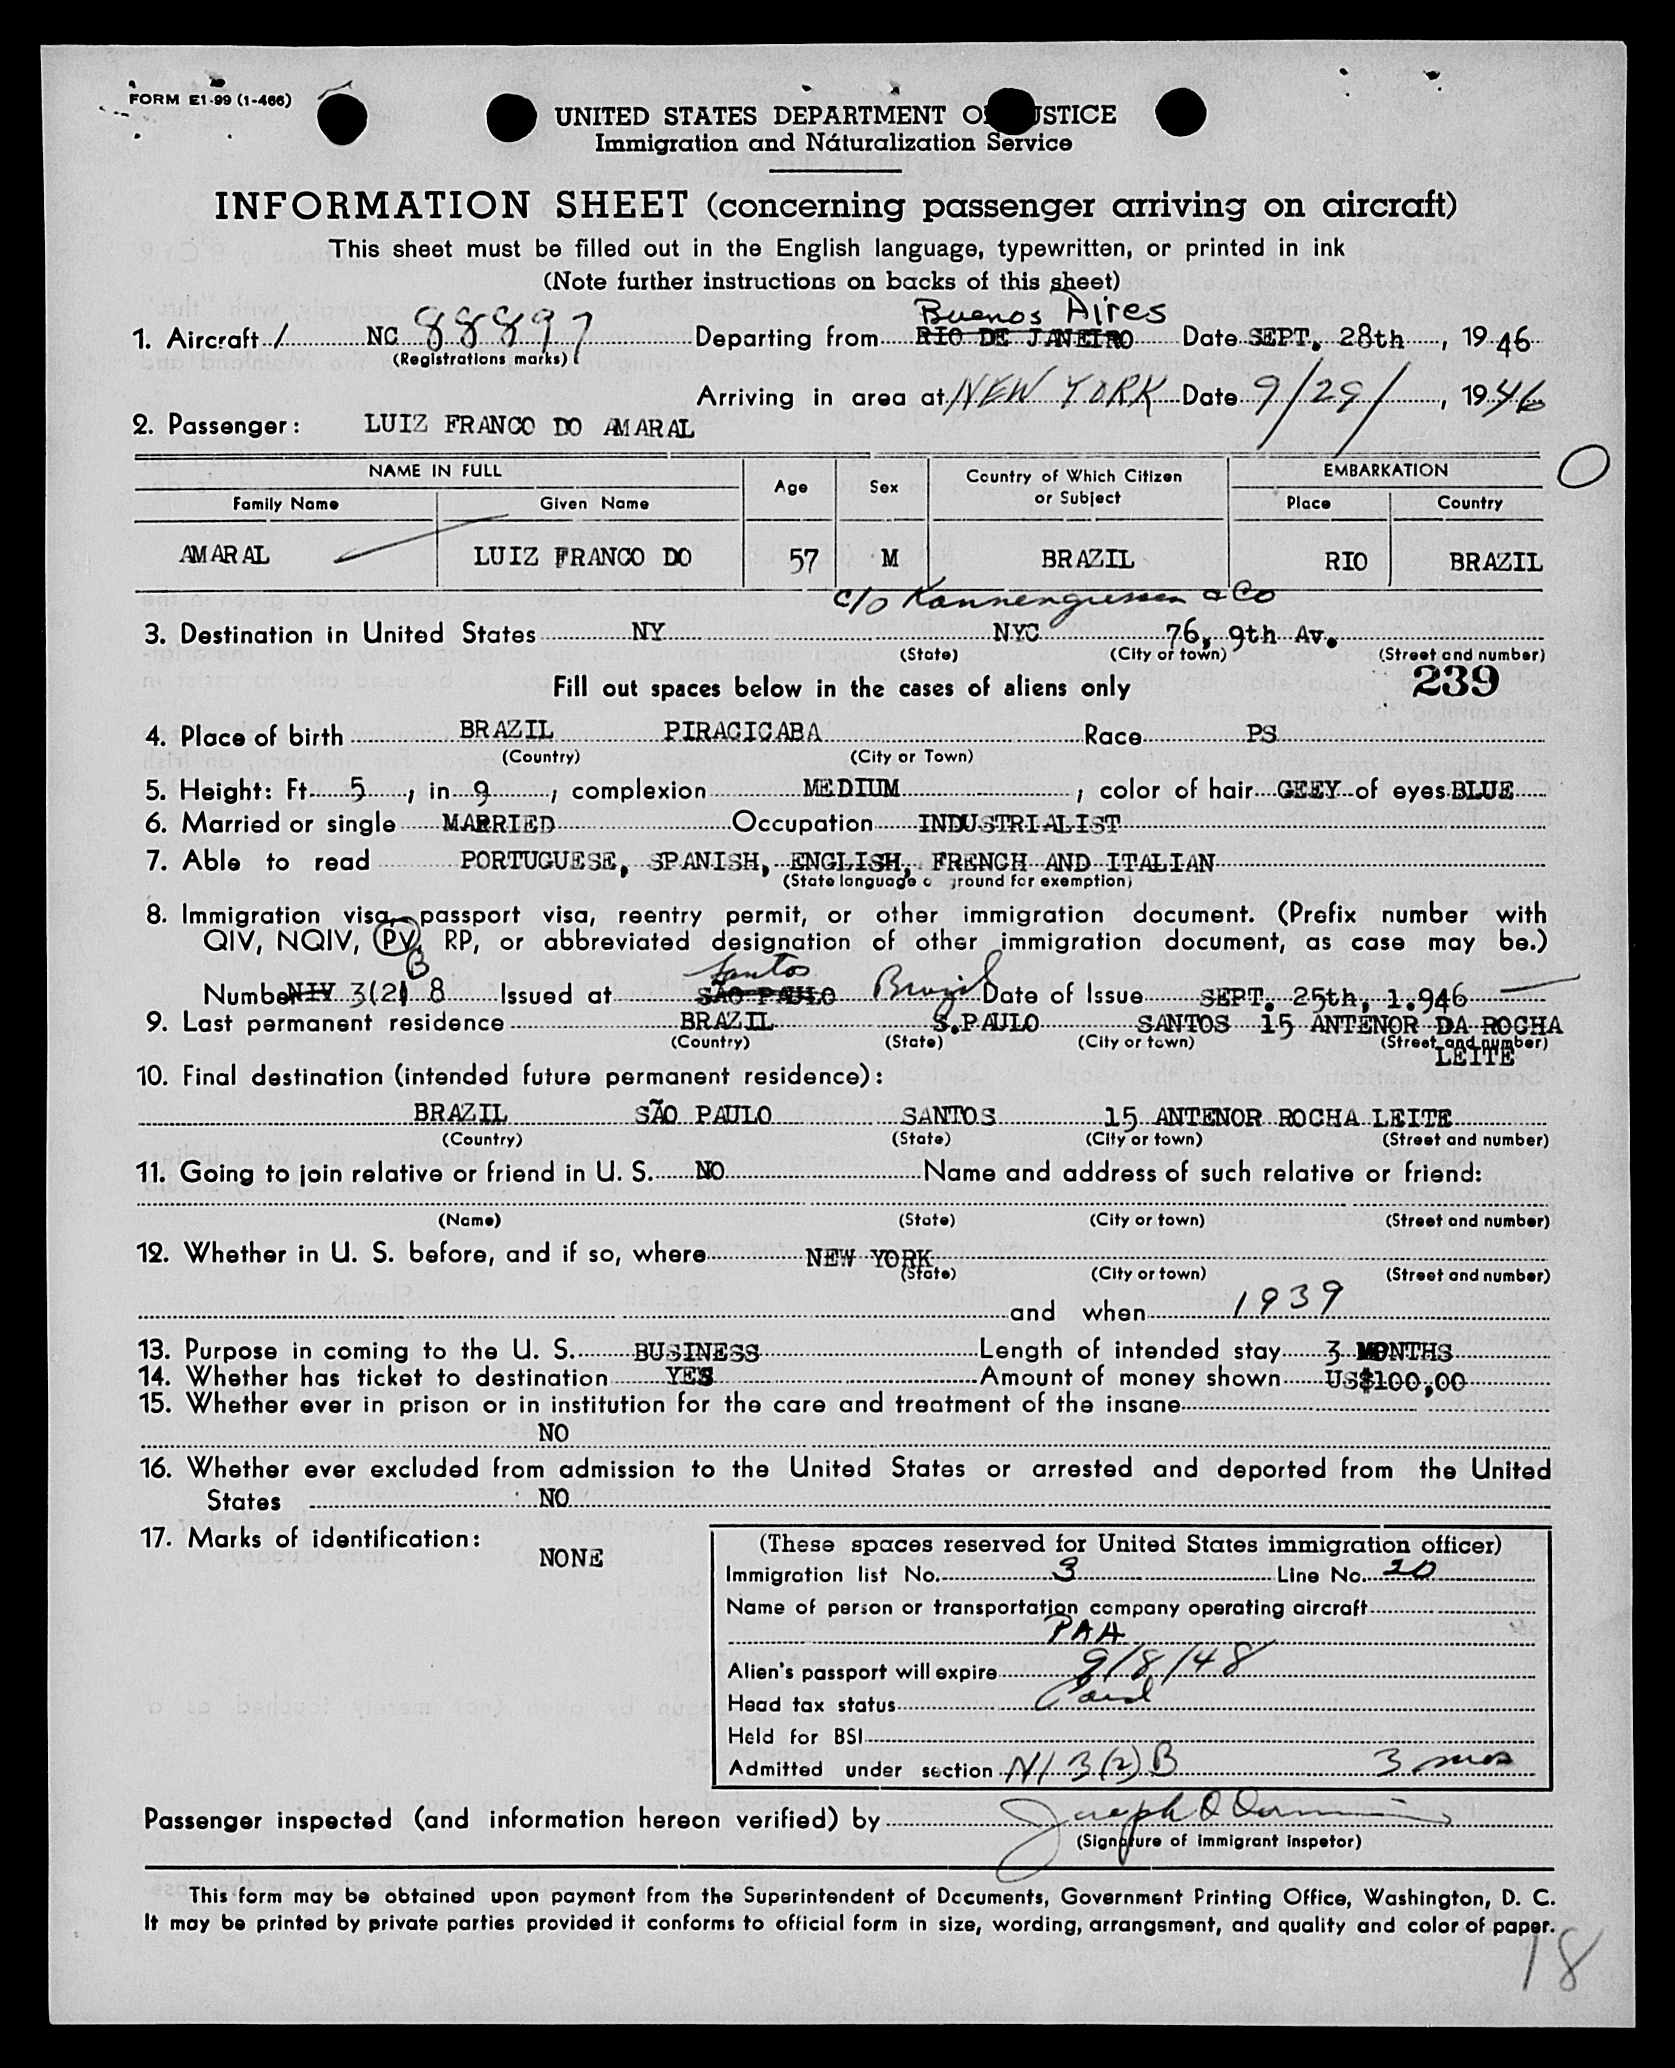 FORM E1-99 (1-466)
UNITED STATES DEPARTMENT OF JUSTICE
Immigration and Naturalization Service
INFORMATION SHEET (concerning passenger arriving on aircraft)
This sheet must be filled out in the English language, typewritten, or printed in ink
(Note further instructions on backs of this sheet)
Buenos Aires
1. Aircraft / NC 88897 Departing from RIO DE JANEIRO Date SEPT. 28th, 1946
(Registrations marks)
Arriving in area at NEW YORK Date 9/29/, 1946
2. Passenger: LUIZ FRANCO DO AMARAL
NAME IN FULL Age Sex Country of Which Citizen or Subject EMBARKATION
Family Name Given Name Place Country
AMARAL LUIZ FRANCO DO 57 M BRAZIL RIO BRAZIL
c/o & Co
3. Destination in United States NY NYC 76, 9th Av.
(State) (City or town) (Street and number)
Fill out spaces below in the cases of aliens only 239
4. Place of birth BRAZIL PIRACICABA Race PS
(Country) (City or Town)
5. Height: Ft. 5, in 9, complexion MEDIUM, color of hair GEEY of eyes BLUE
6. Married or single MARRIED Occupation INDUSTRIALIST
7. Able to read PORTUGUESE, SPANISH, ENGLISH, FRENCH AND ITALIAN
(State language o ground for exemption)
8. Immigration visa, passport visa, reentry permit, or other immigration document. (Prefix number with
QIV, NQIV, PV, RP, or abbreviated designation of other immigration document, as case may be.)
B Santos
Number NIV 3(2) 8 Issued at SÃO PAULO Brazil Date of Issue SEPT. 25th, 1.946
9. Last permanent residence BRAZIL S.PAULO SANTOS 15 ANTENOR DA ROCHA
(Country) (State) (City or town) (Street and number)
LEITE
10. Final destination (intended future permanent residence):
BRAZIL SÃO PAULO SANTOS 15 ANTENOR ROCHA LEITE
(Country) (State) (City or town) (Street and number)
11. Going to join relative or friend in U. S. NO Name and address of such relative or friend:
(Name) (State) (City or town) (Street and number)
12. Whether in U. S. before, and if so, where NEW YORK
(State) (City or town) (Street and number)
and when 1939
13. Purpose in coming to the U. S. BUSINESS Length of intended stay 3 MONTHS
14. Whether has ticket to destination YES Amount of money shown US$100,00
15. Whether ever in prison or in institution for the care and treatment of the insane
NO
16. Whether ever excluded from admission to the United States or arrested and deported from the United
States NO
17. Marks of identification: NONE
(These spaces reserved for United States immigration officer)
Immigration list No. 3 Line No. 20
Name of person or transportation company operating aircraft
PAA
Alien's passport will expire 9/8/48
Head tax status Paid
Held for BSI
Admitted under section NI 3(2)B 3 mos
Passenger inspected (and information hereon verified) by Joseph
(Signature of immigrant inspetor)
This form may be obtained upon payment from the Superintendent of Documents, Government Printing Office, Washington, D. C.
It may be printed by private parties provided it conforms to official form in size, wording, arrangement, and quality and color of paper.
18